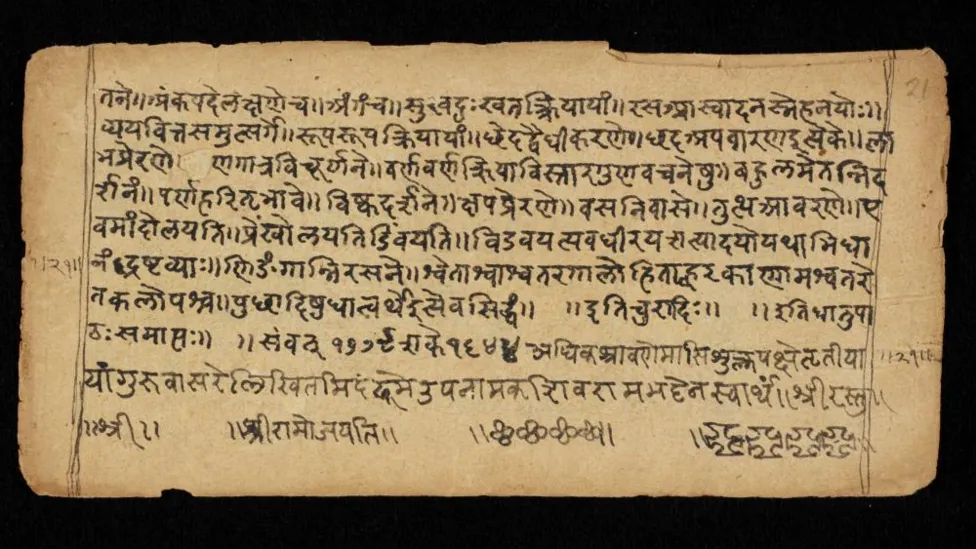 तने॥ अंकपदेलक्षणेच॥ अंगंच॥ सुखदुःखतत्क्रियायां॥ रसआस्वादनस्नेहनयोः॥
व्ययवित्तसमुत्सर्गे॥ रूपरूपक्रियायां॥ छेदद्वैधीकरणे॥ छदअपवारणइत्येके॥ ला
भप्रेरणे॥ गात्रविचूर्णने॥ वर्णवर्णक्रियाविस्तारगुणवचनेषु॥ बहुलमेतन्निद
र्शनं॥ पर्णहरितभावे॥ विष्कदर्शने॥ क्षपप्रेरणे॥ वसनिवासे॥ तुत्थआवरणे॥ ए
वमांदोलयति॥ प्रेंखोलयति विडंबयति॥ अवधीरय इत्यादयोयथाभिधा
नं द्रष्टव्याः॥ णिङंगान्निरसने॥ श्वेताश्वाश्वतरगालोडिताह्वरकाणामश्वतरे
तकलोपश्च॥ पुच्छादिषुधात्वर्थेइत्येवसिद्धं॥ ॥इतिचुरादिः॥ ॥इतिधातुपा
ठःसमाप्तः॥ ॥संवत् शके अधिकश्रावणेमासिशुक्लपक्षेतृतीया
यांगुरुवासरेलिखितमिदं उपनामक रामभट्टेनस्वार्थं॥ श्रीरस्तु॥
॥श्री॥ ॥श्रीरामोजयति॥
॥२१॥
॥२१॥
21